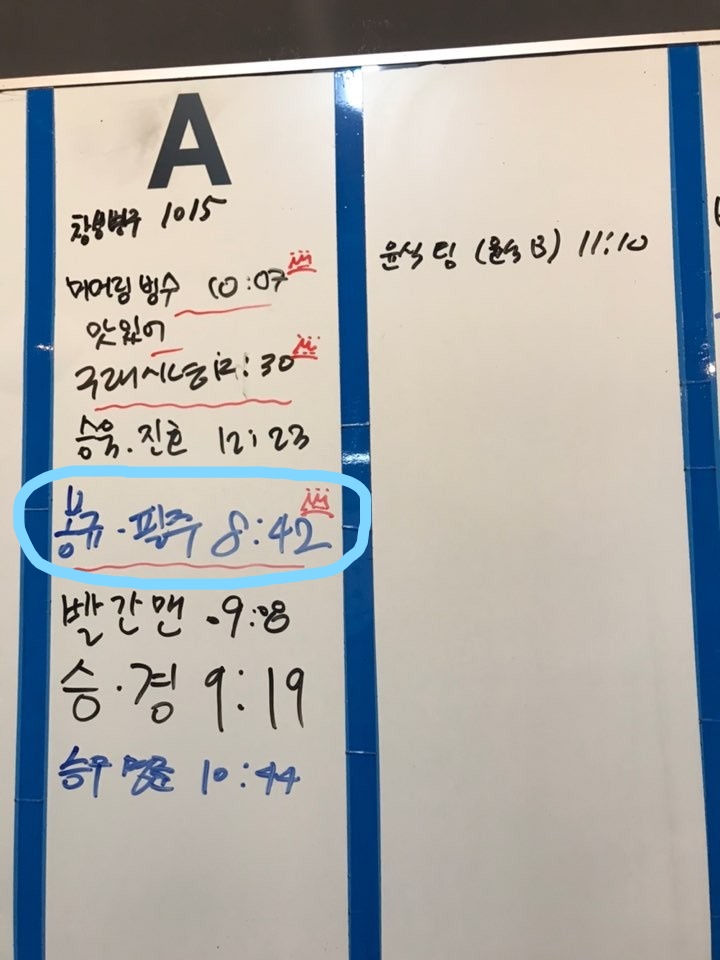 A
창용병주 1015
머머링 빙수 10:07
맛있어
12:30
승욱.진호 12:23
봉규.필주 8:42
빨간맨 .9:08
승.경 9:19
승우 명훈 10:44
윤식 팀 (윤숙 B) 11:10